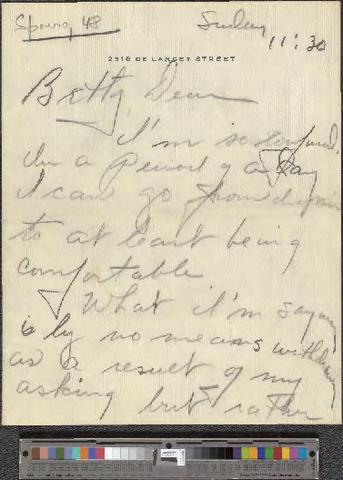 Spring 48
Sunday
11:30
2316 DE LANCEY STREET
Betty Dear
I'm so confused.
In a period of a day
I can go from despair
to at least being
comfortable
What I'm saying
is by no means withdrawn
as a result of my
asking but rather